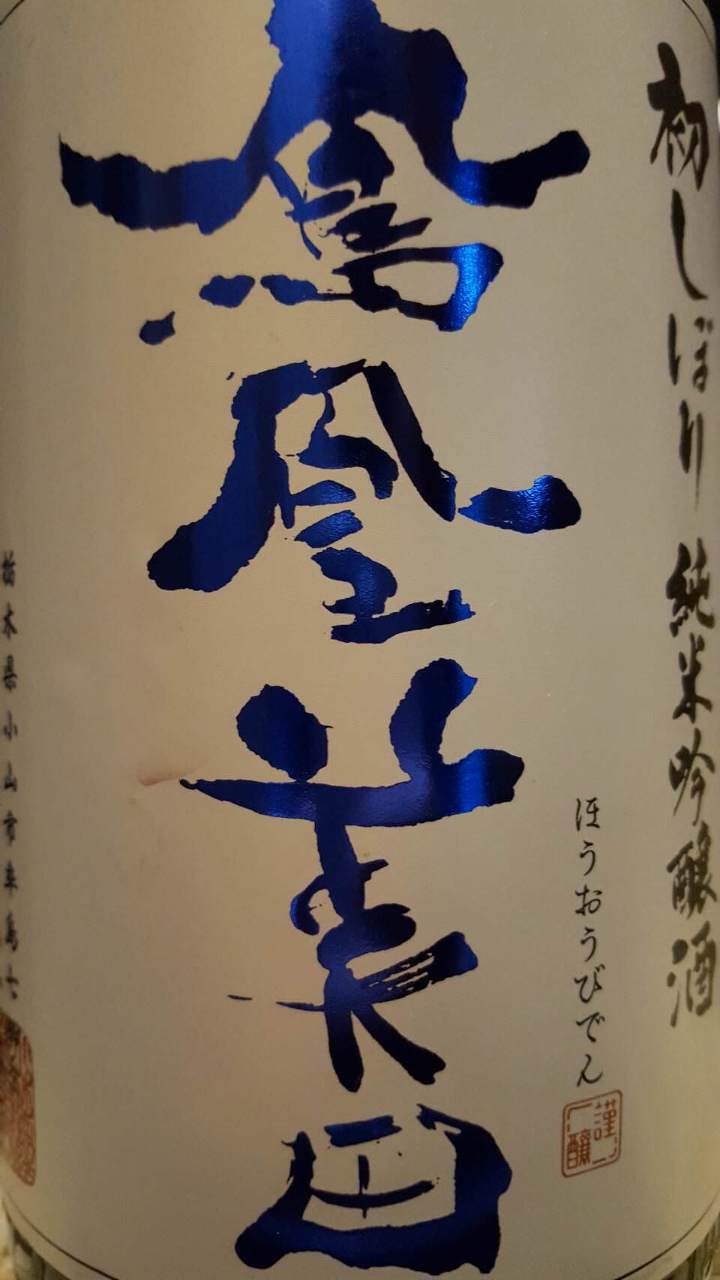 初しぼり 純米吟醸酒
ほうおうびでん
謹醸
鳳凰美田
栃木県小山市卒島七